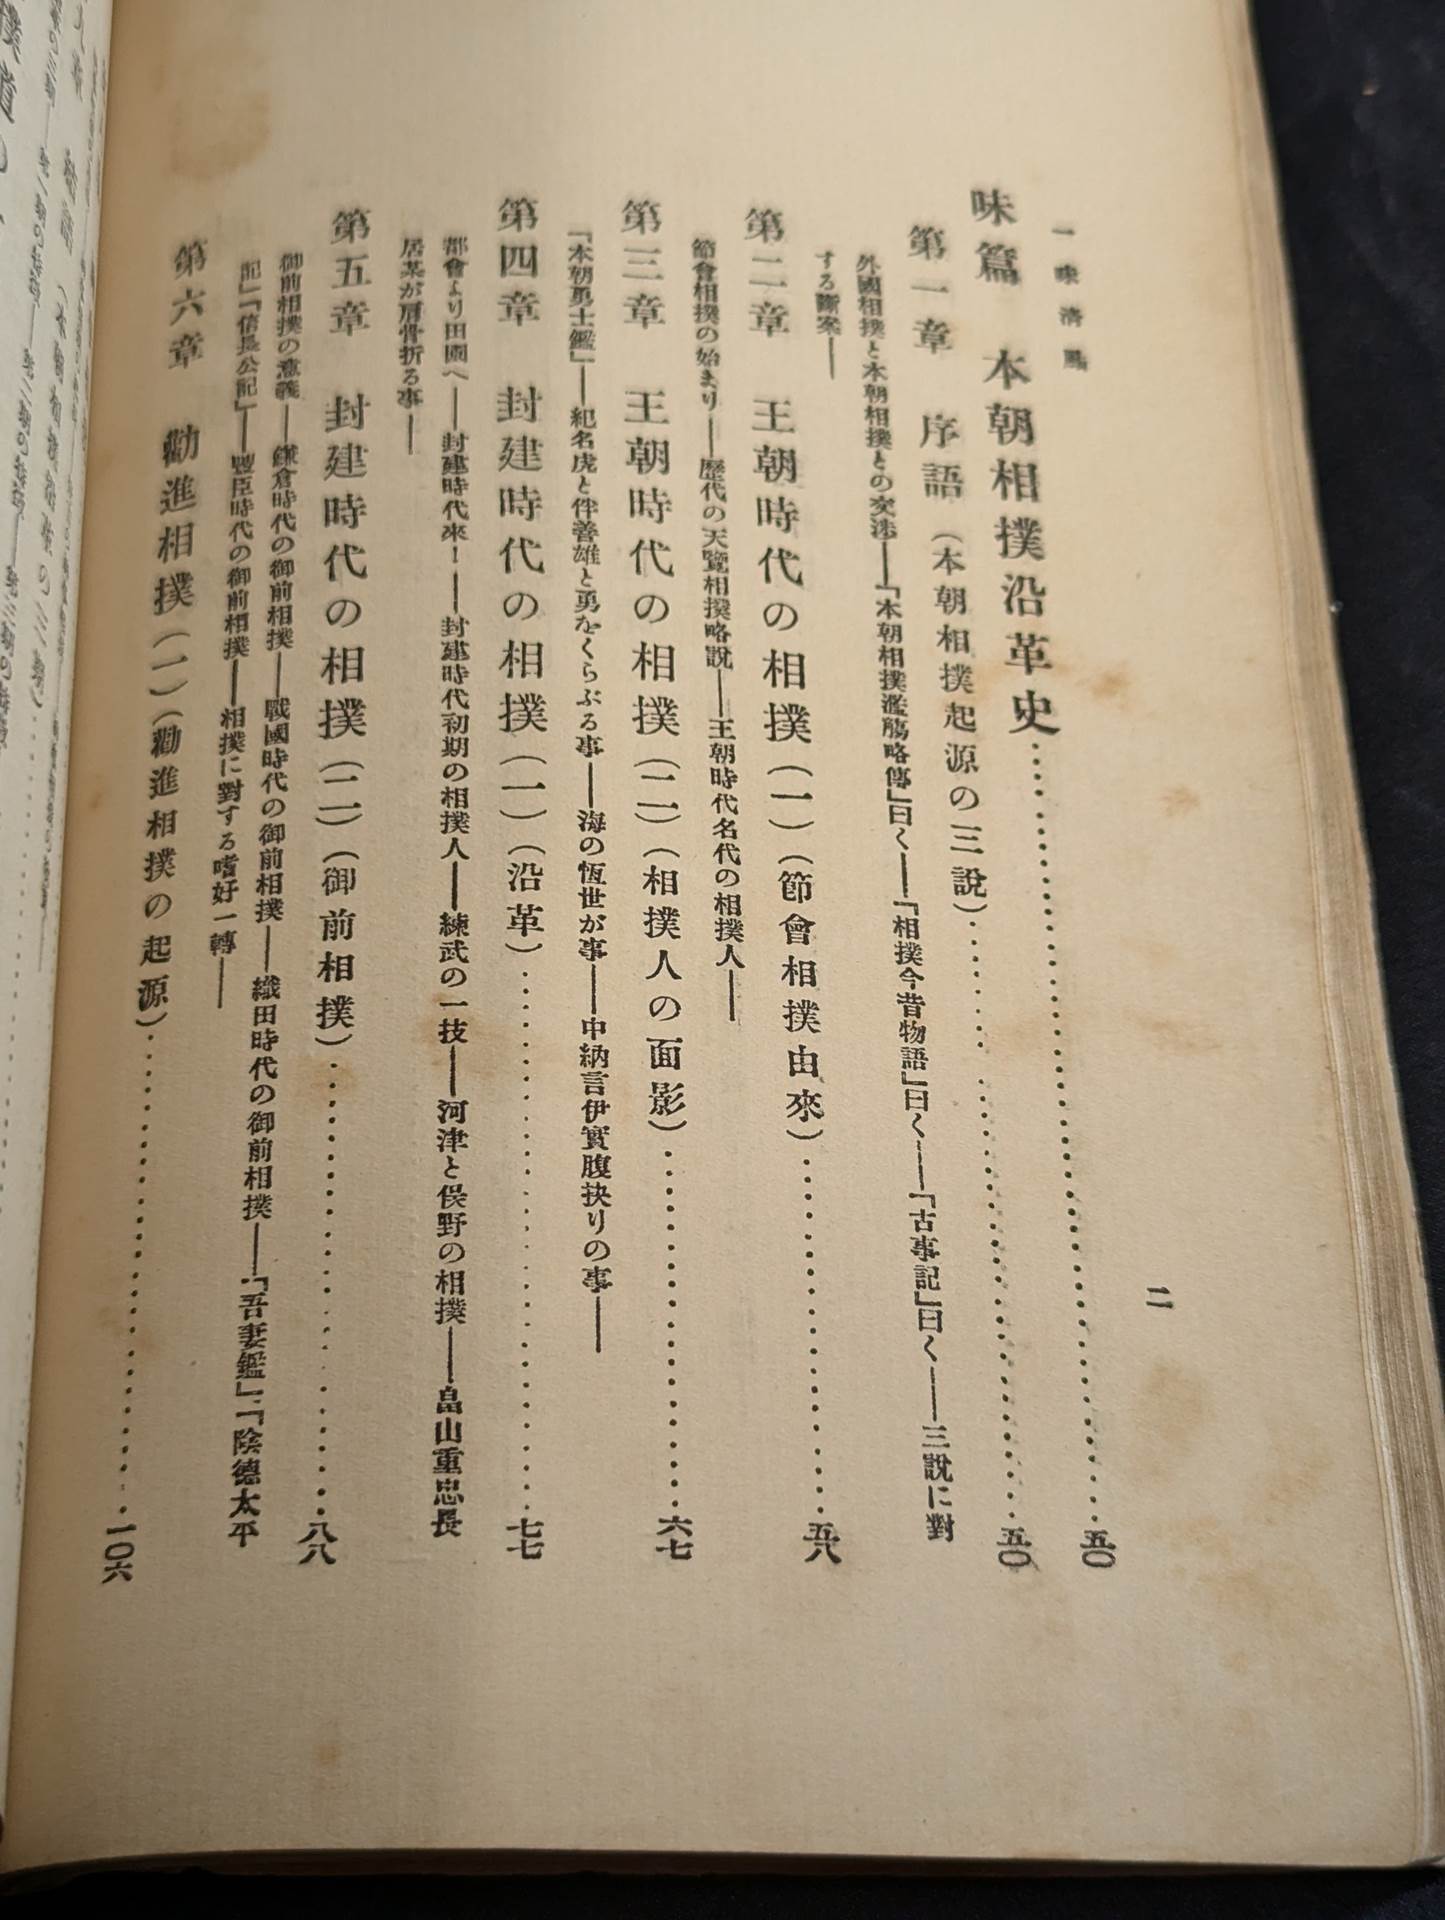 一味清風
二
味篇　本朝相撲沿革史……五〇
第一章　序語（本朝相撲起源の三說）……五〇
外國相撲と本朝相撲との交渉――『本朝相撲濫觴略傳』曰く――『相撲今昔物語』曰く――『古事記』曰く――三說に對
する斷案――
第二章　王朝時代の相撲（一）（節會相撲由來）……五八
節會相撲の始まり――歷代の天覽相撲略說――王朝時代名代の相撲人――
第三章　王朝時代の相撲（二）（相撲人の面影）……六七
『本朝勇士鑑』――紀名虎と伴善雄と勇をくらぶる事――海の恆世が事――中納言伊實腹抉りの事――
第四章　封建時代の相撲（一）（沿革）……七七
都會より田園へ――封建時代來！――封建時代初期の相撲人――練武の一技――河津と俣野の相撲――畠山重忠長
居某が肩骨折る事――
第五章　封建時代の相撲（二）（御前相撲）……八八
御前相撲の意義――鎌倉時代の御前相撲――戰國時代の御前相撲――織田時代の御前相撲――『吾妻鑑』『陰德太平
記』『信長公記』――豐臣時代の御前相撲――相撲に對する嗜好一轉――
第六章　勸進相撲（一）（勸進相撲の起源）……一〇六